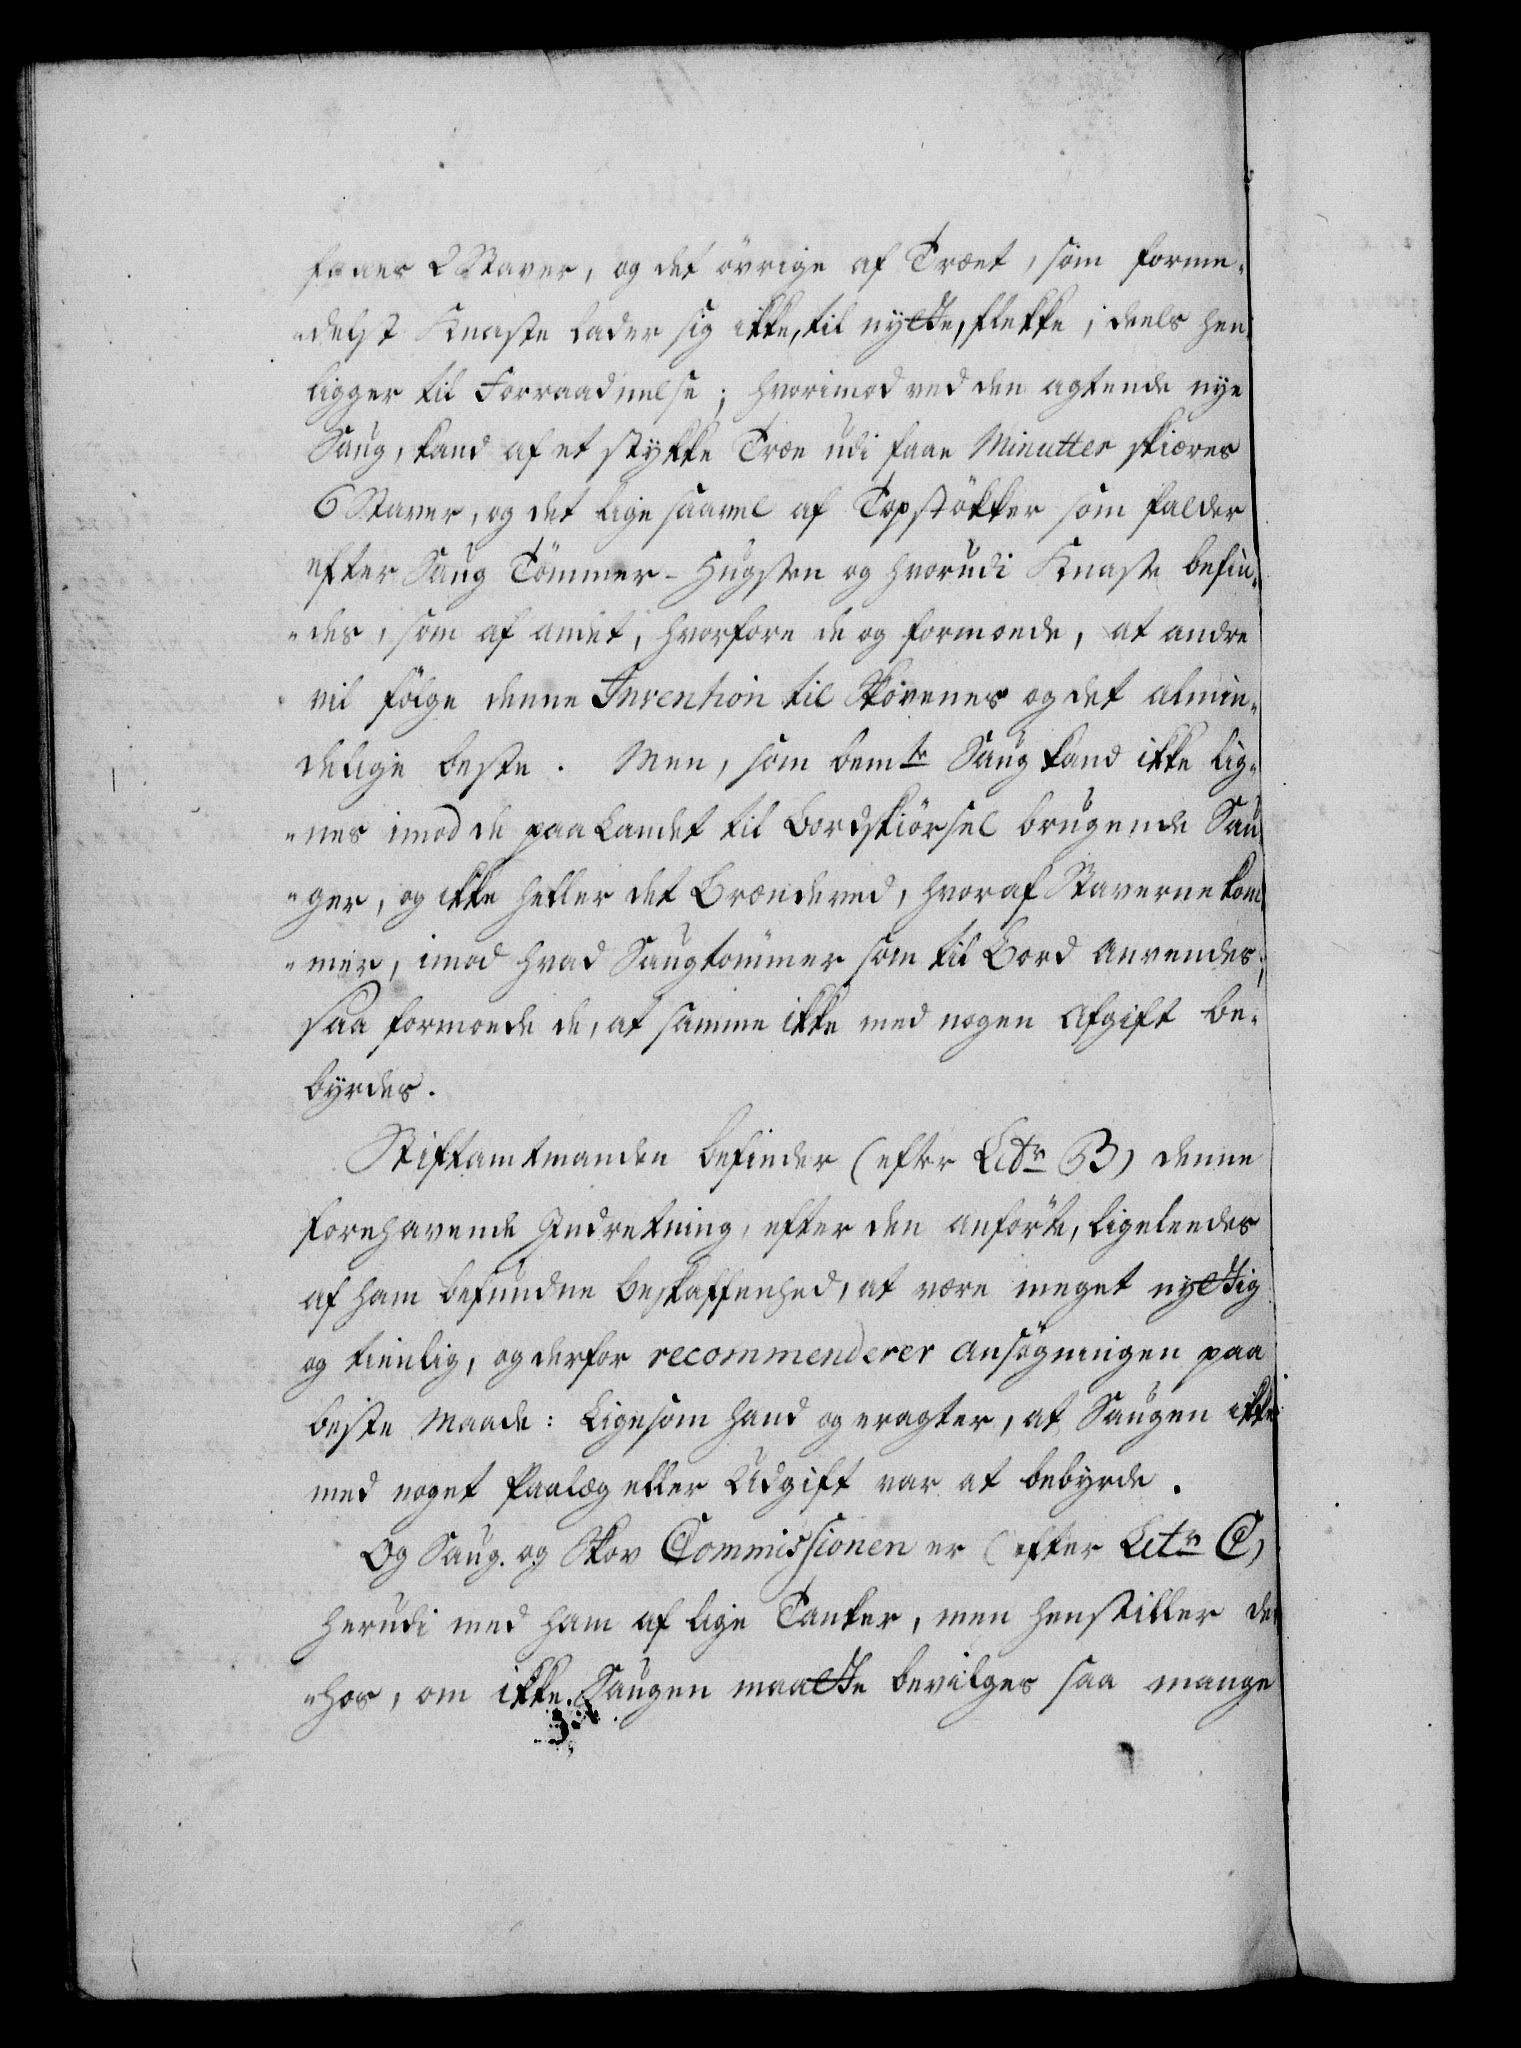 faaes 2 Staver, og det övrige af Træet, som forme-
"delst Knaste lader sig ikke, til nytte, flekke, deels hen-
ligger til Forraadnelse; hvorimod ved den agtende nye
Saug, kand af et stykke Træe udi faae Minutter skiæres
6 Staver, og det lige saavel af Topstökker som falder
efter Saug Tömmer-Hugsten og hvorudi Knaste befin-
"des, som af andet, hvorfore de og formoede, at andre
vil fölge denne Invention til Skovenes og det almin-
delige beste. Men, som bemte Saug kand ikke lig-
"nes imod de paa Landet til Bordskiörsel brugende Sau-
"ger, og ikke heller det Brændeved, hvoraf Staverne kom-
"mer, imod hvad Saugtömmer som til Bord anvendes;
saa formoede de, at samme ikke med nogen Afgift be-
byrdes.
Stiftamtmanden befinder (efter Litr B) denne
forehavende Indretning, efter den anförte, ligeleedes
af ham befundne beskaffenhed, at være meget nyttig
og tienlig, og derfor recommenderer ansögningen paa
beste Maade: Ligesom hand og eragter, at Saugen ikke
med noget Paalæg eller Udgift var at bebyrde.
Og Saug- og Skov Commissionen er (efter Litr C)
herudi med ham af lige Tanker, men henstiller der
"hos, om ikke Saugen maatte bevilges saa mange